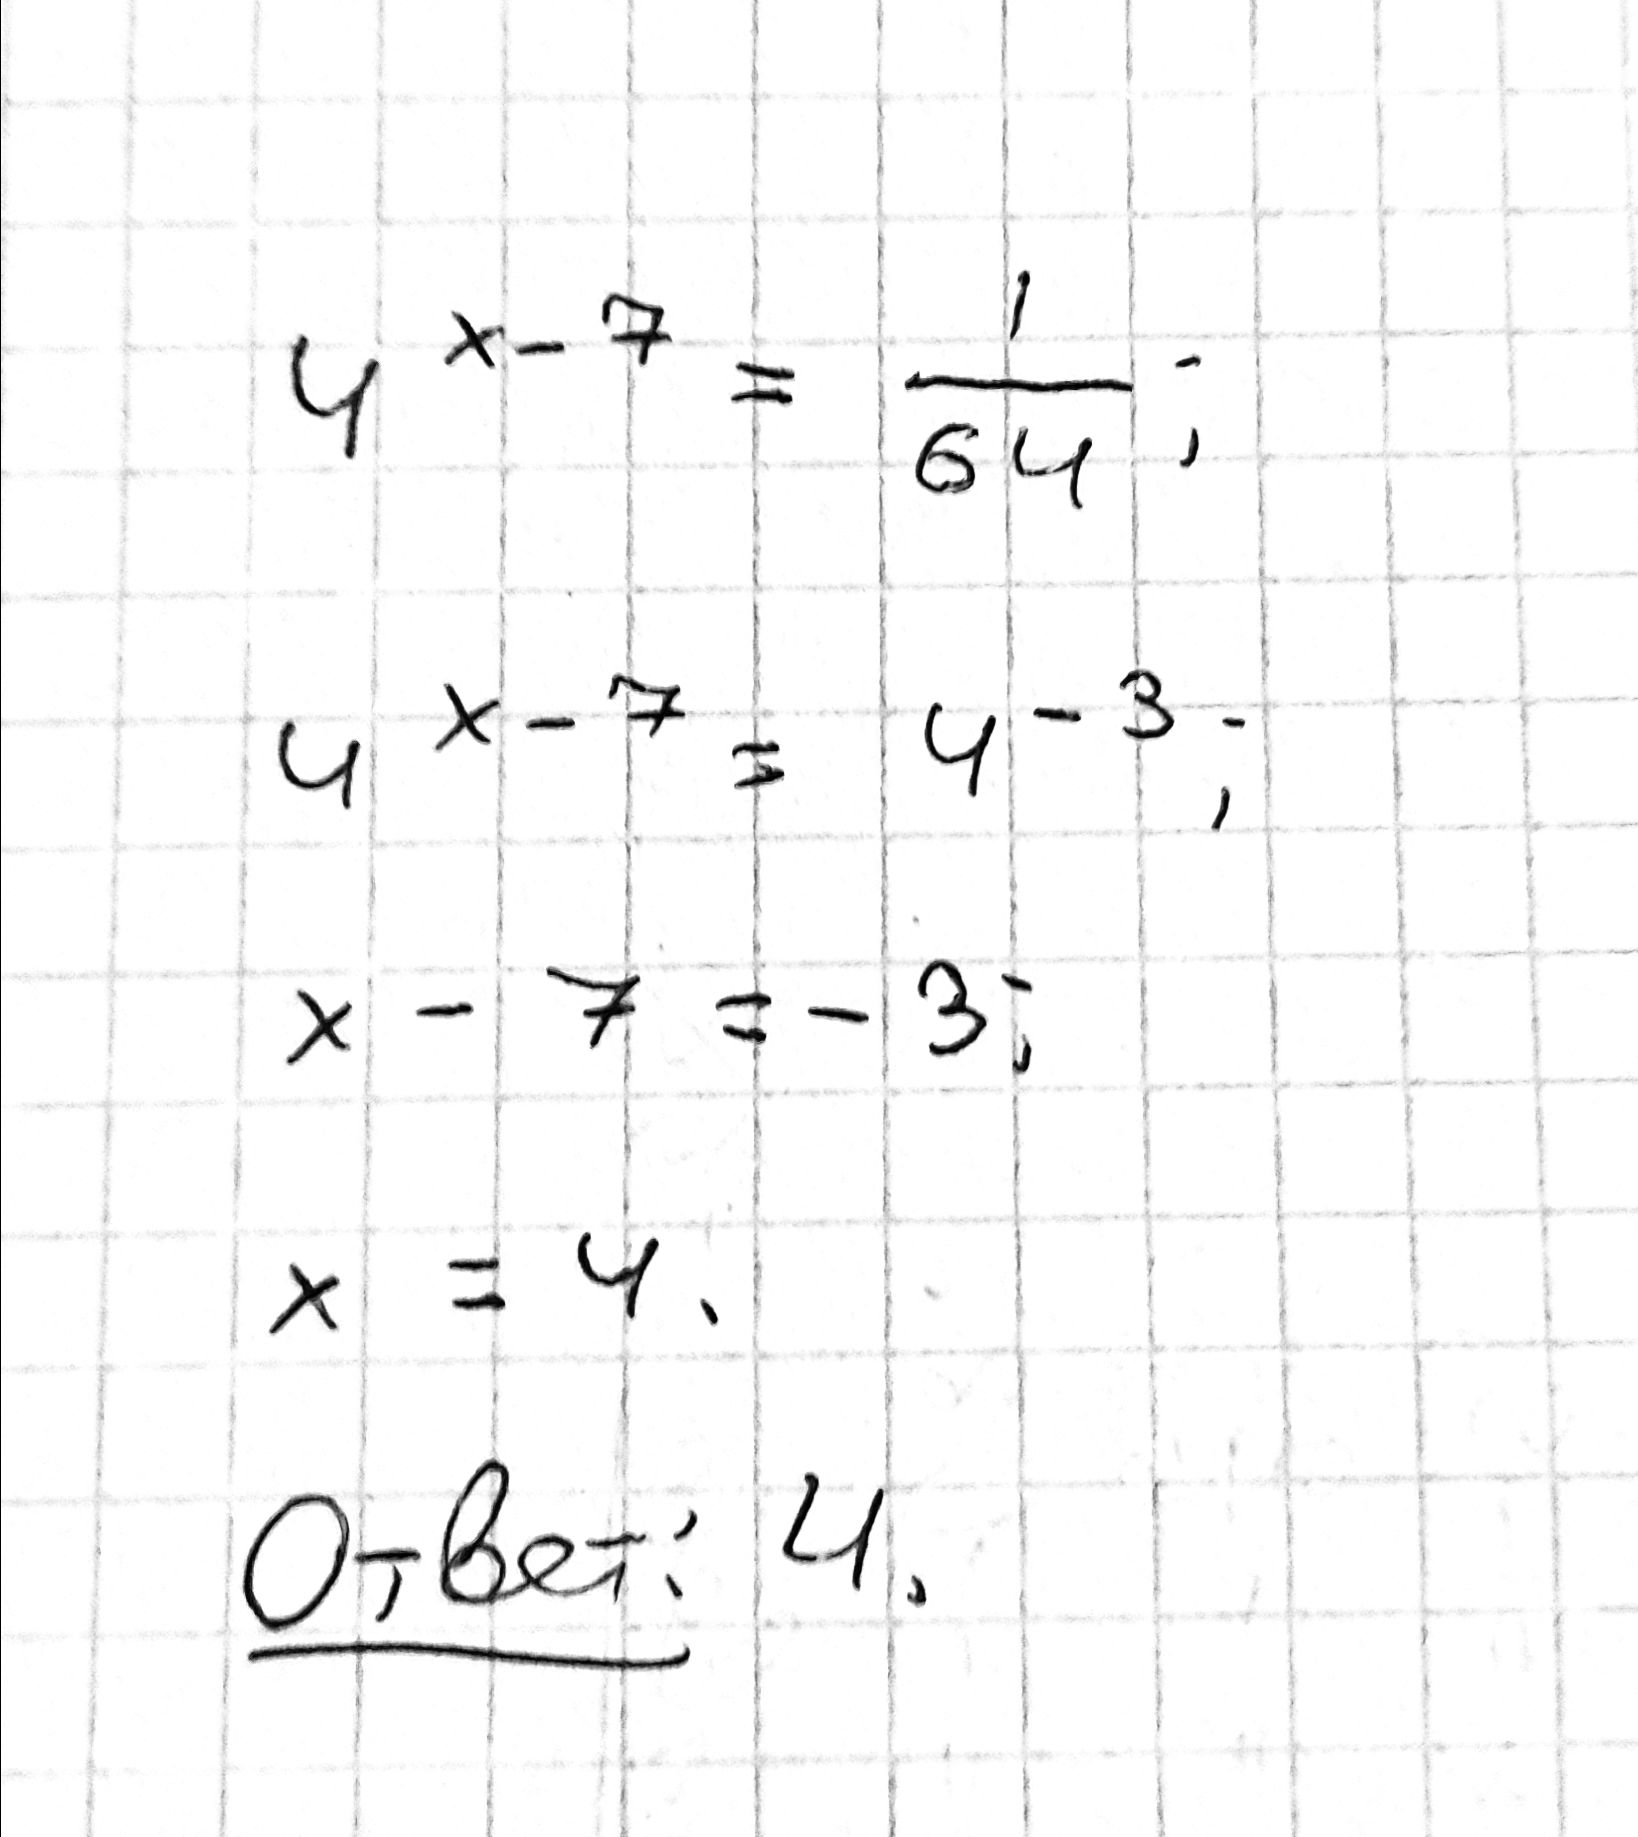 4^{x-7} = \frac{1}{64};
4^{x-7} = 4^{-3};
x - 7 = -3;
x = 4.
Ответ: 4.